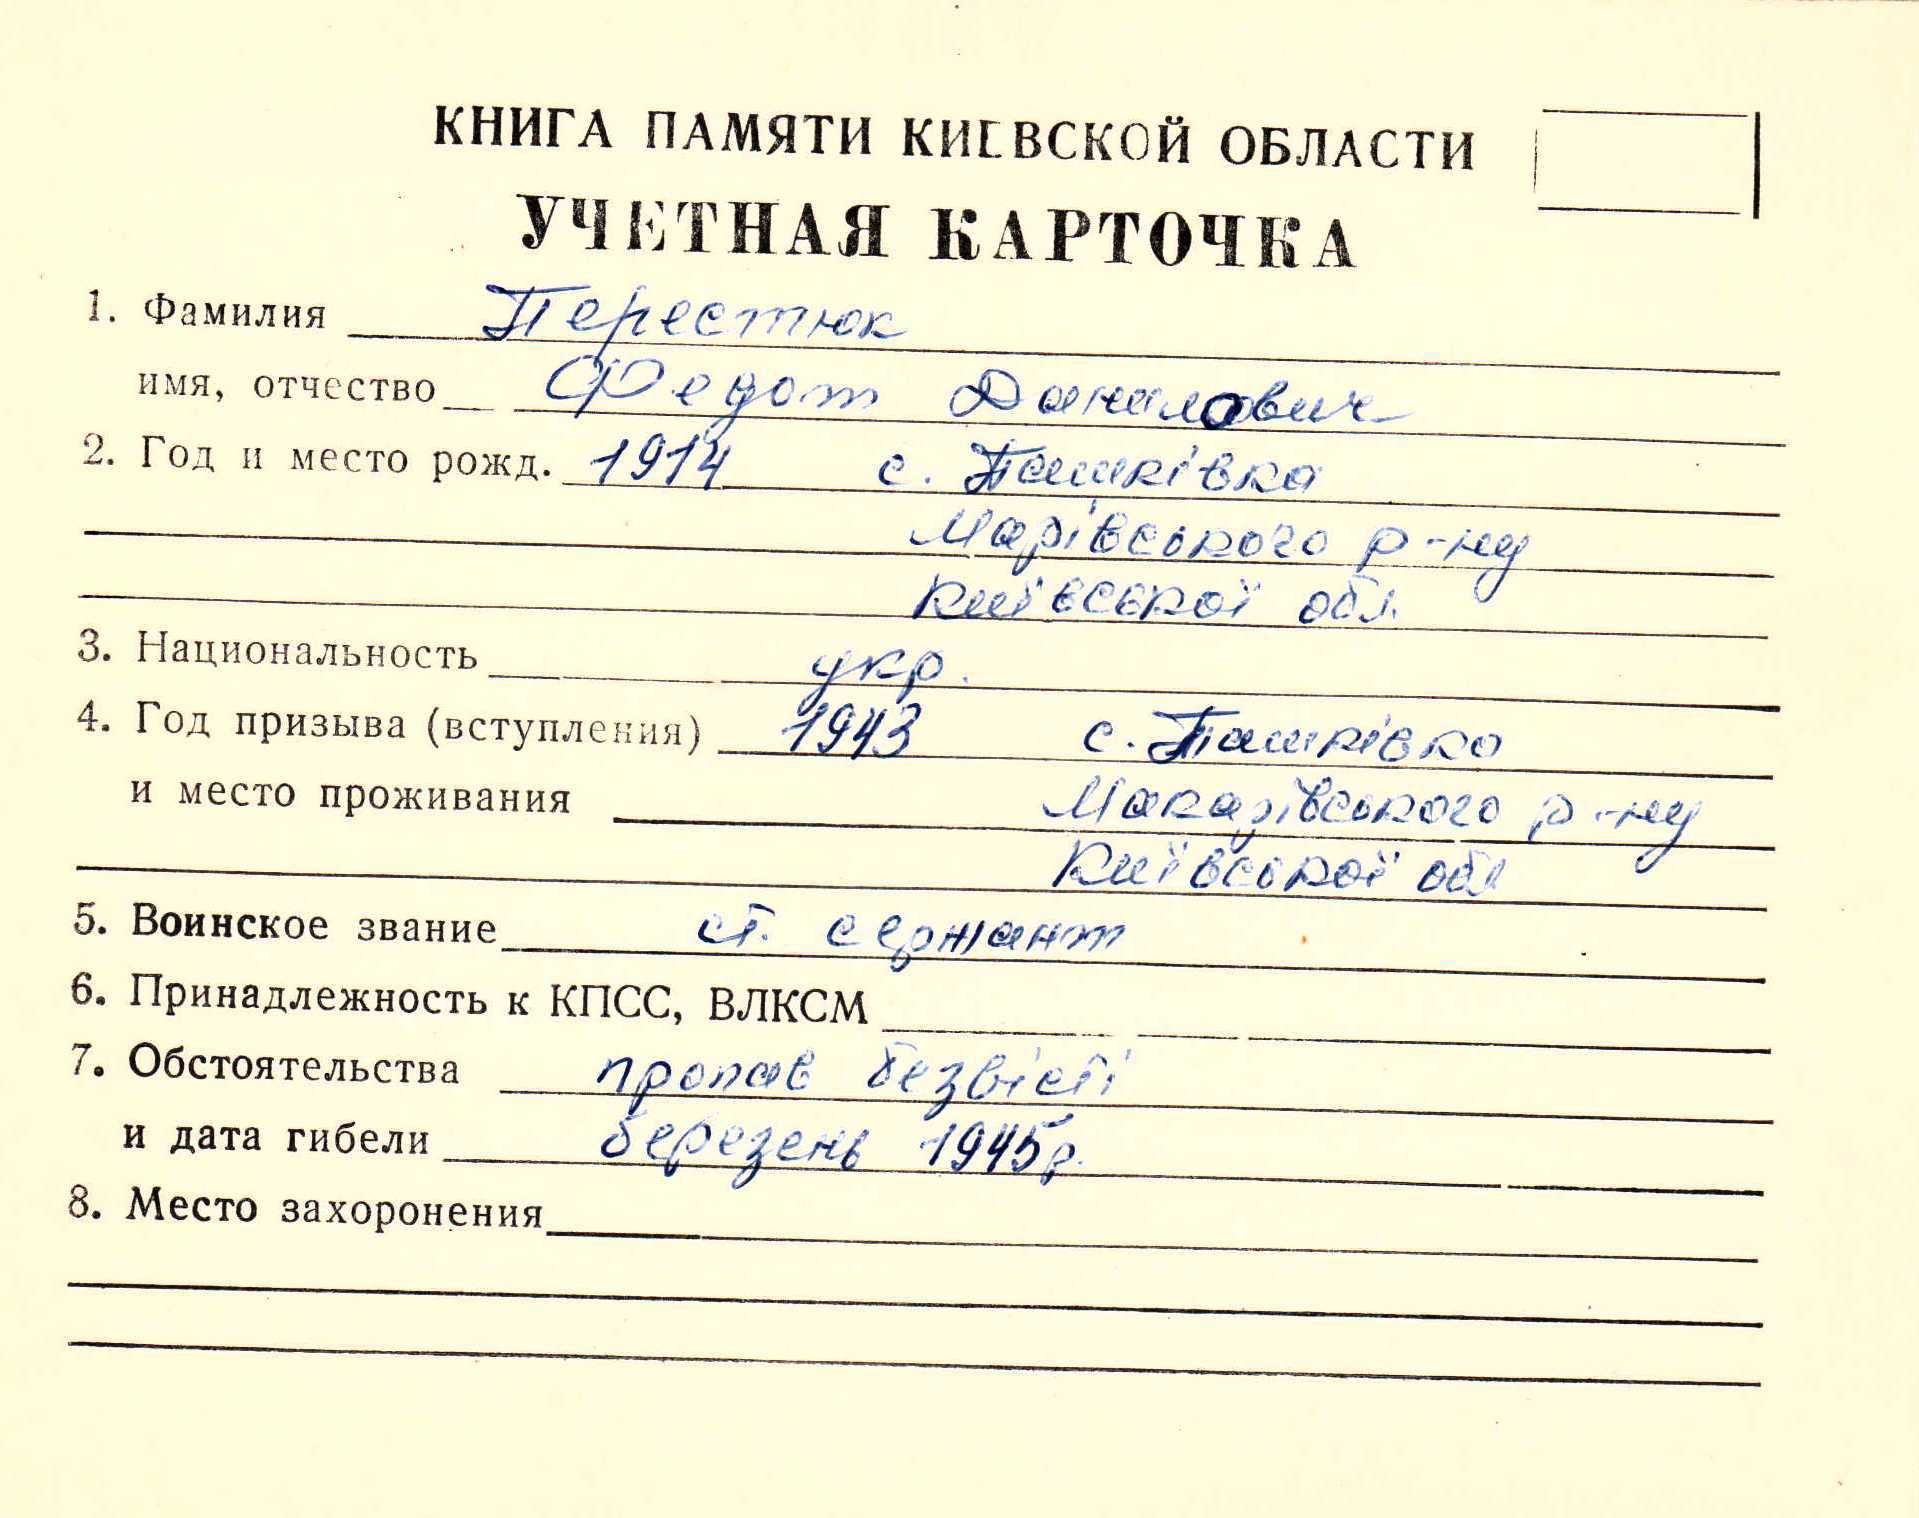 КНИГА ПАМЯТИ КИЕВСКОЙ ОБЛАСТИ
УЧЕТНАЯ КАРТОЧКА
1. Фамилия Перестюк
имя, отчество Федот Данилович
2. Год и место рожд. 1914 с. Пашківка
Марівського р-ну
Київської обл.
3. Национальность укр.
4. Год призыва (вступления) 1943 с. Пашківка
и место проживания Макарівського р-ну
Київської обл
5. Воинское звание ст. сержант
6. Принадлежность к КПСС, ВЛКСМ
7. Обстоятельства пропав безвісті
и дата гибели березень 1945р.
8. Место захоронения